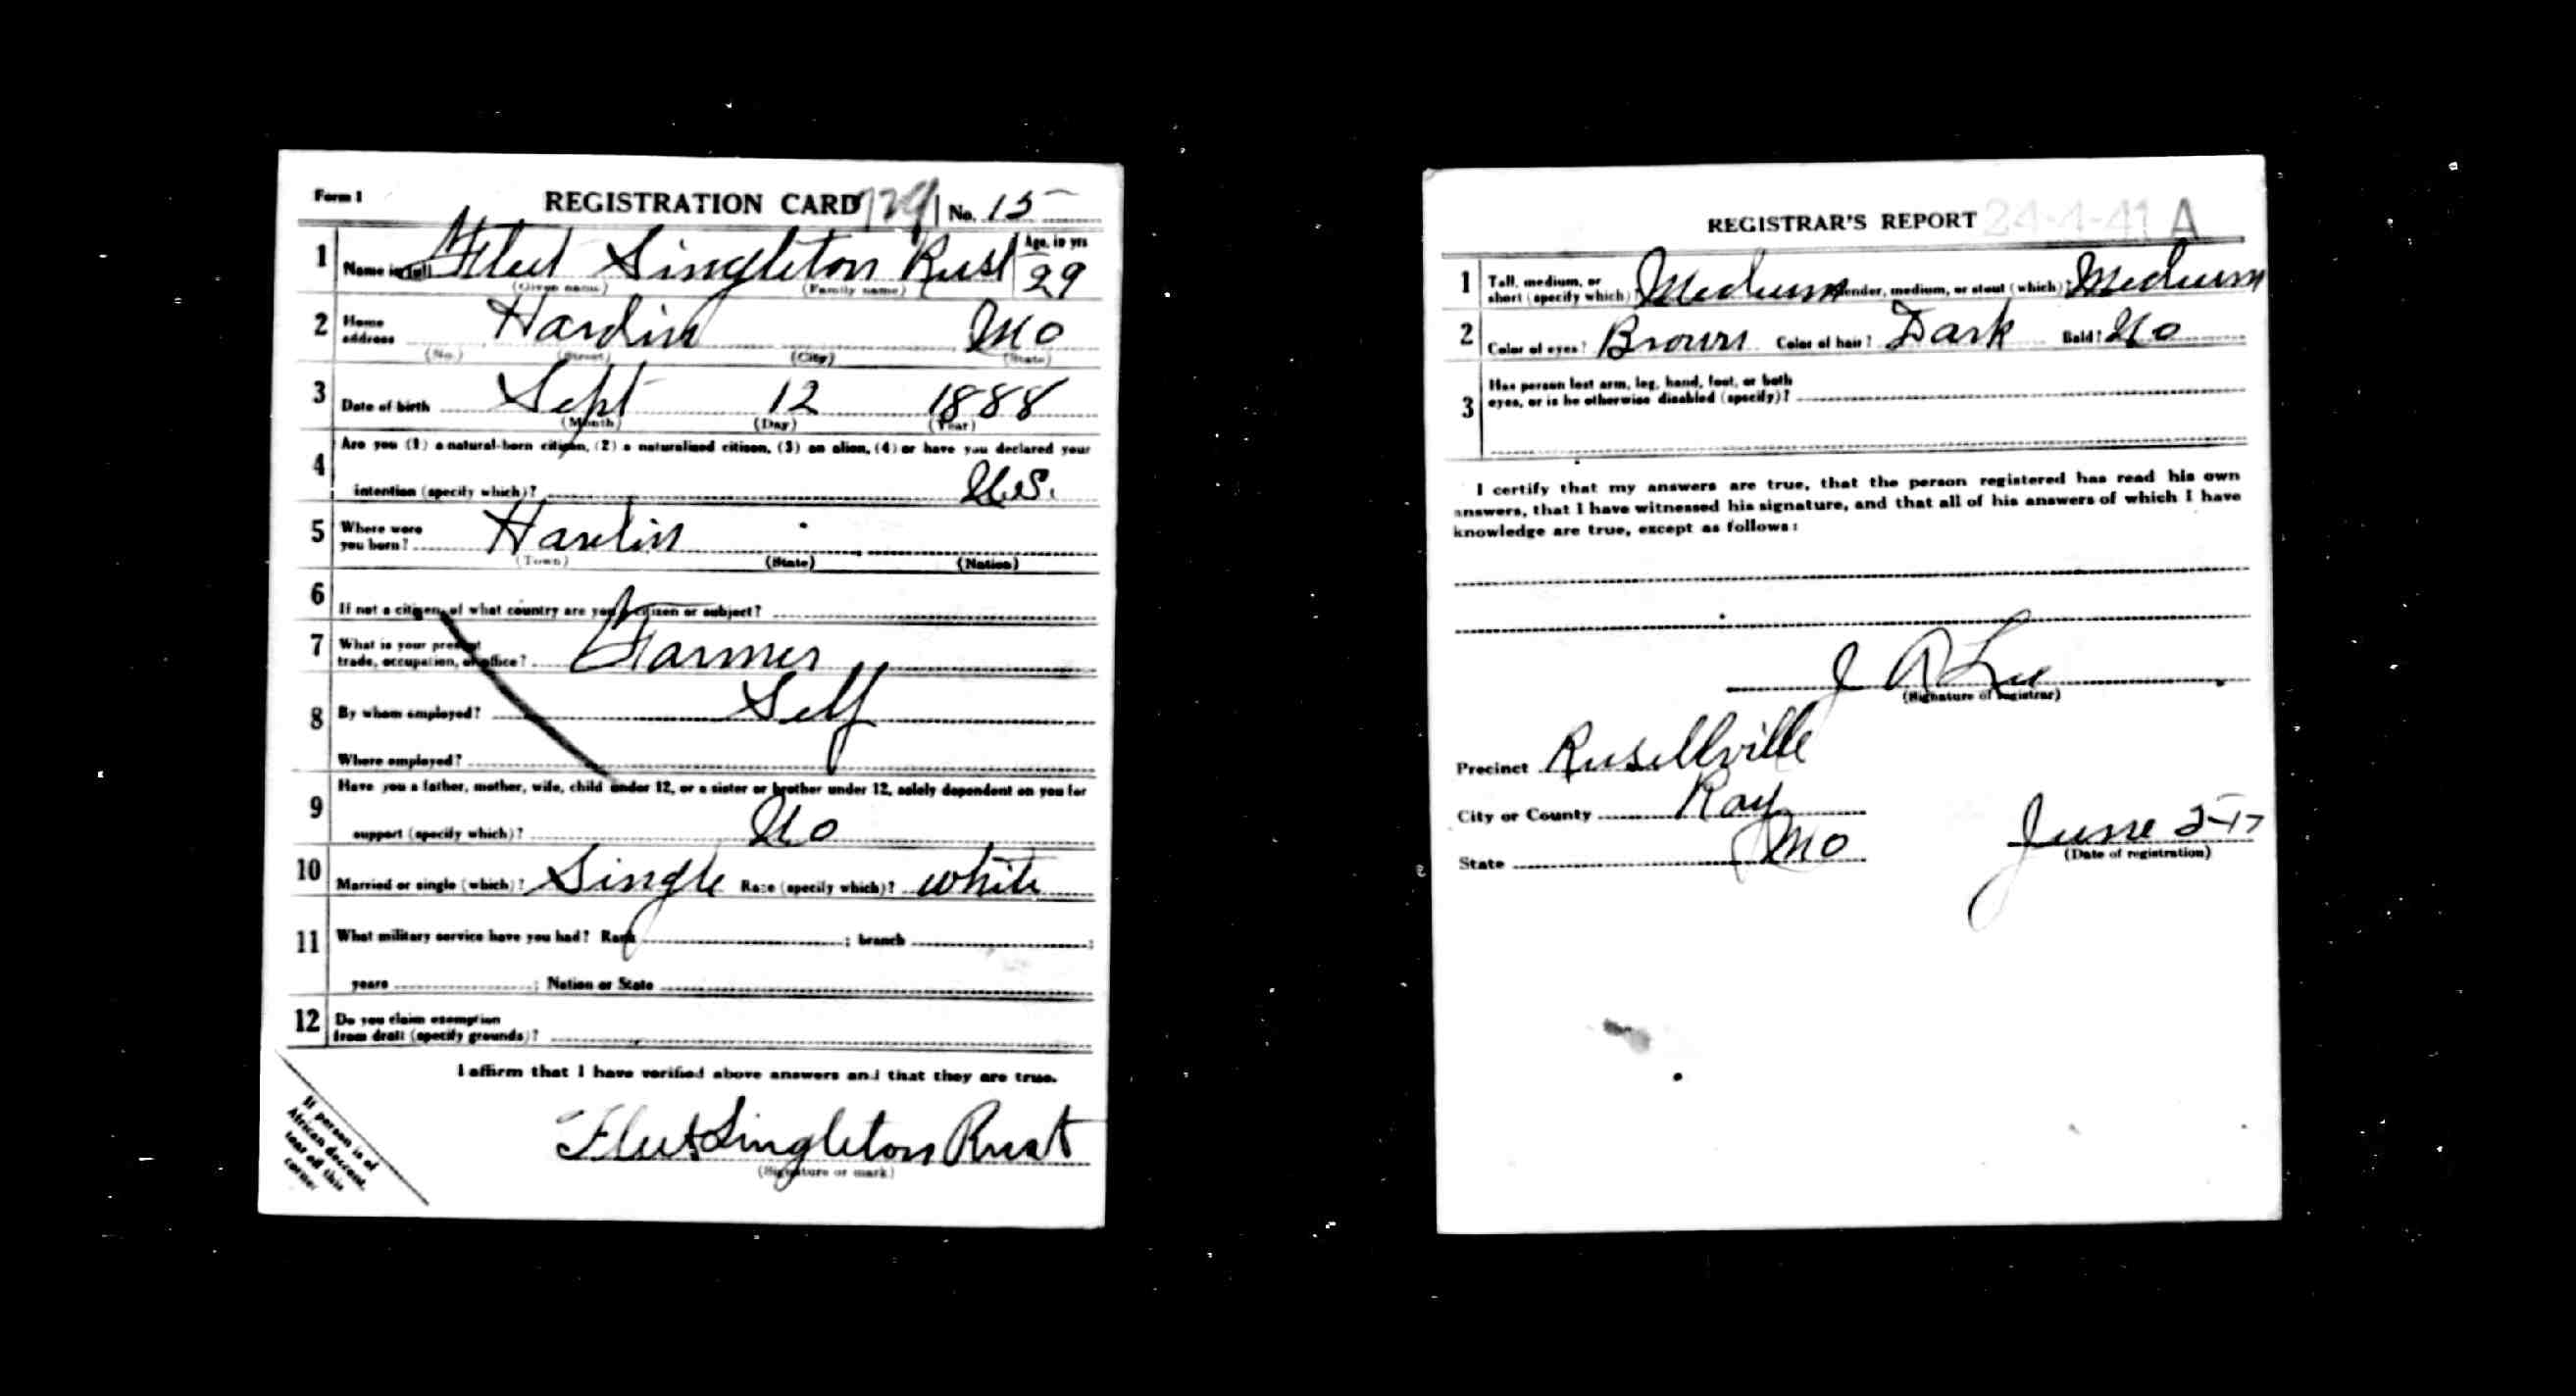 Form 1 REGISTRATION CARD 729 No. 15
1 Name in full Fleet Singleton Rust Age, in yrs 29
(Given name) (Family name)
2 Home address Hardin Mo
(No.) (Street) (City) (State)
3 Date of birth Sept 12 1888
(Month) (Day) (Year)
4 Are you (1) a natural-born citizen, (2) a naturalized citizen, (3) an alien, (4) or have you declared your
intention (specify which)? U.S.
5 Where were you born? Hardin
(Town) (State) (Nation)
6 If not a citizen, of what country are you a citizen or subject?
7 What is your present trade, occupation, or office? Farmer
8 By whom employed? Self
Where employed?
9 Have you a father, mother, wife, child under 12, or a sister or brother under 12, solely dependent on you for
support (specify which)? No
10 Married or single (which)? Single Race (specify which)? white
11 What military service have you had? Rank ; branch ;
years ; Nation or State
12 Do you claim exemption
from draft (specify grounds)?
I affirm that I have verified above answers and that they are true.
Fleet Singleton Rust
(Signature or mark)
If person is of
African descent,
tear off this
corner
REGISTRAR'S REPORT 24-4-41 A
1 Tall, medium, or short (specify which)? Medium Slender, medium, or stout (which)? Medium
2 Color of eyes? Brown Color of hair? Dark Bald? No
3 Has person lost arm, leg, hand, foot, or both
eyes, or is he otherwise disabled (specify)?
I certify that my answers are true, that the person registered has read his own
answers, that I have witnessed his signature, and that all of his answers of which I have
knowledge are true, except as follows:
J A Lee
(Signature of registrar)
Precinct Rusellville
City or County Ray
State Mo June 5-17
(Date of registration)